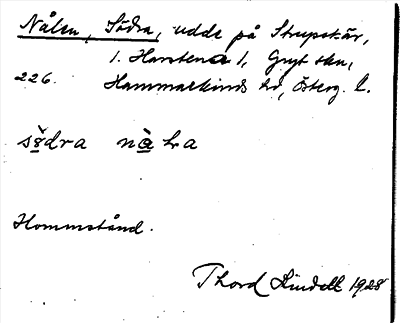 Nålen, Södra, udde på Strupskär,
1. Harstena 1, Gryt skn,
226. Hammarkinds hd, Österg. l.
södra nà la
Hommstånd.
Thord Lindell 1928